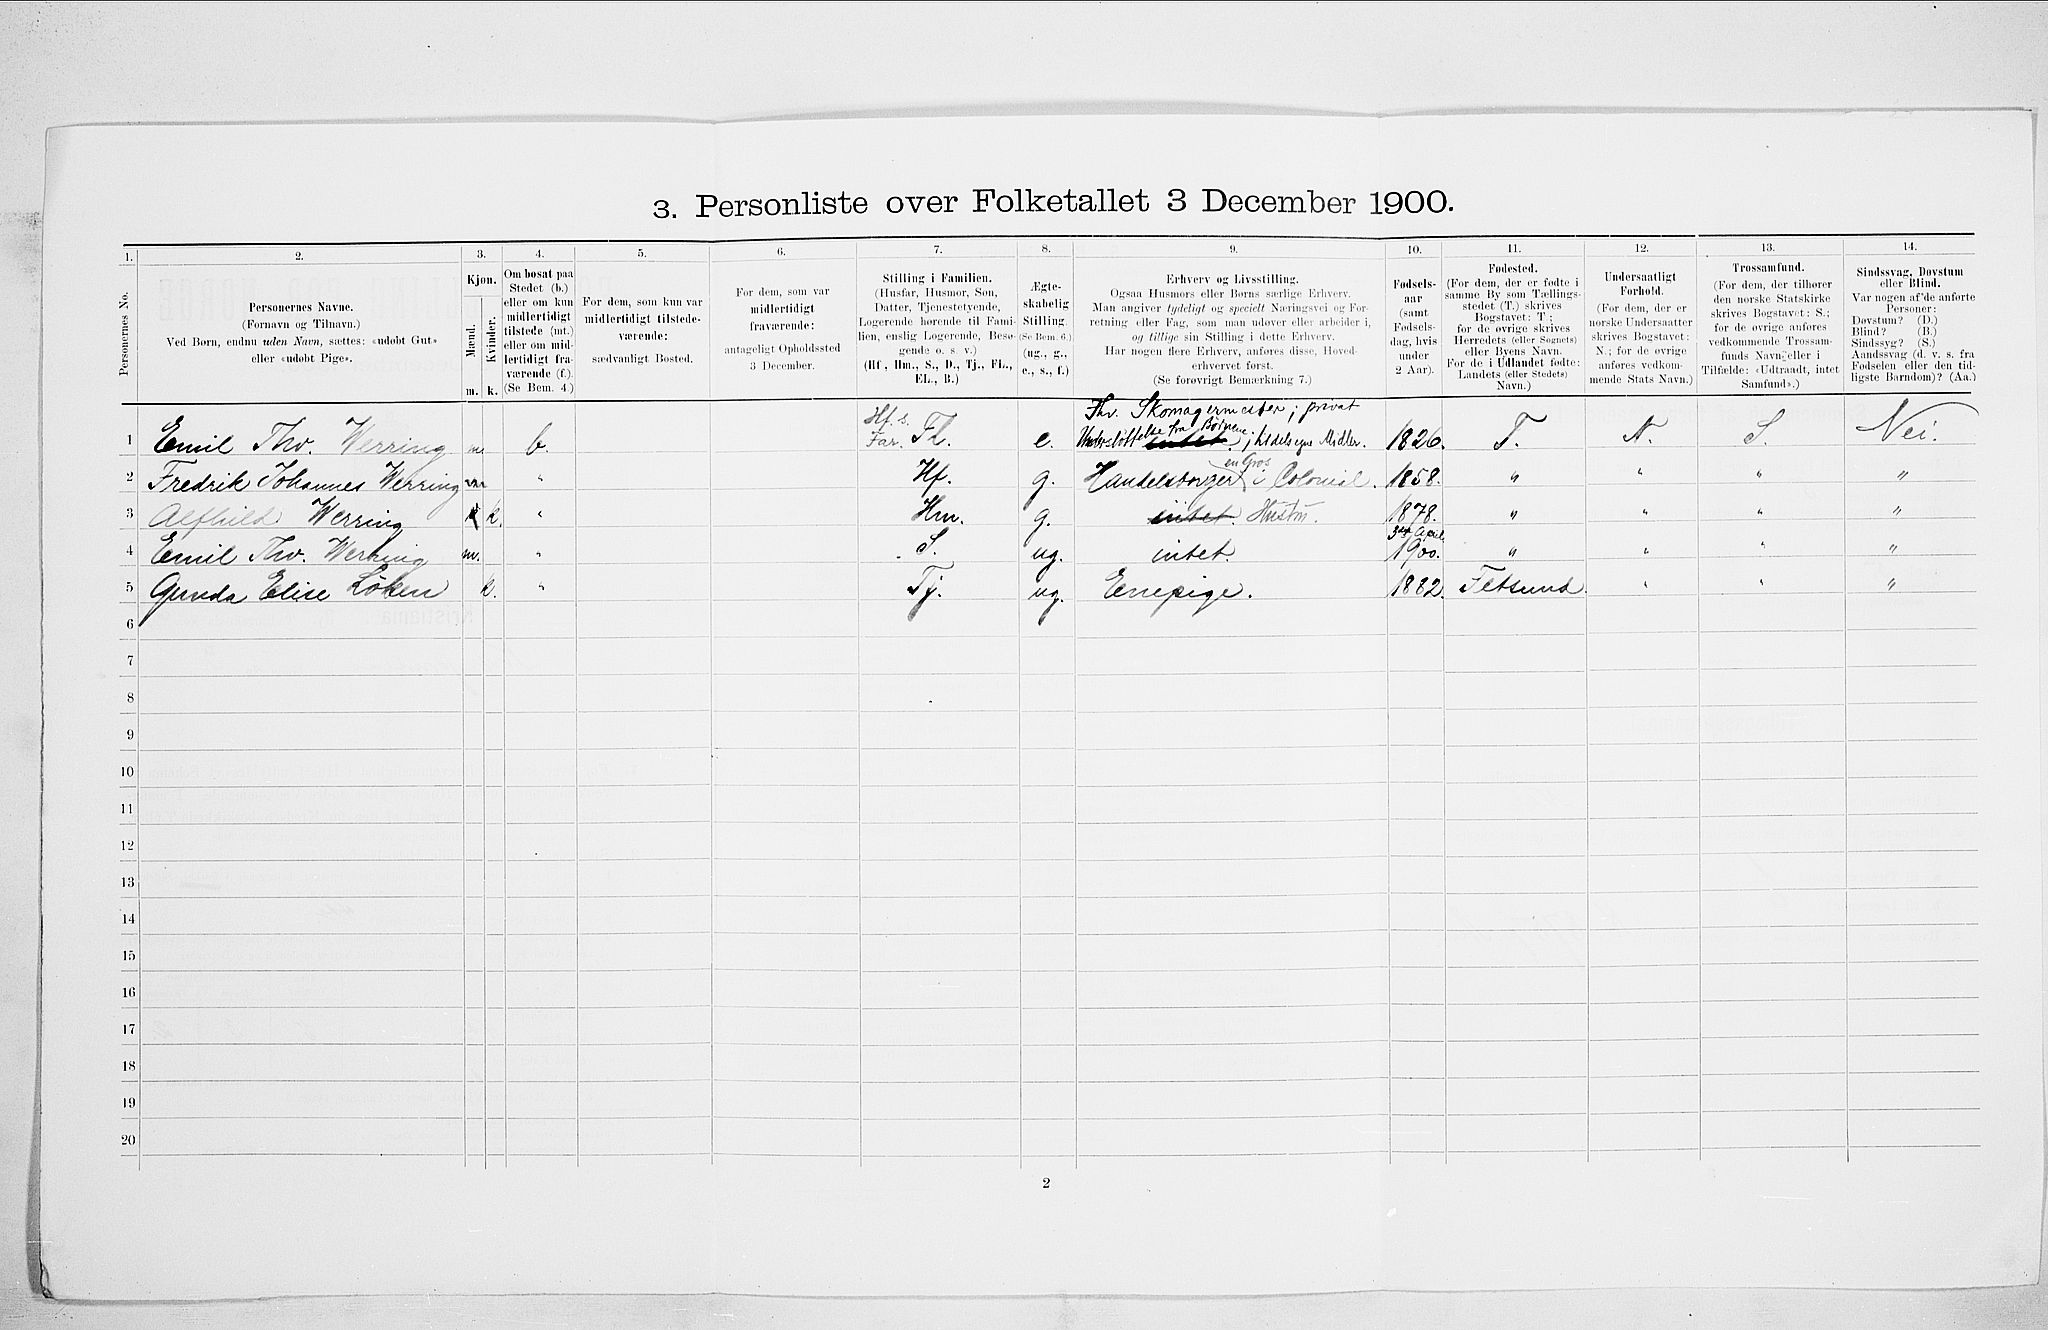 3. Personliste over Folketallet 3 December 1900.
1. 2. 3. 4. 5. 6. 7. 8. 9. 10. 11. 12. 13. 14.
Personernes No.
Personernes Navne.
(Fornavn og Tilnavn.)
Ved Børn, endnu uden Navn, sættes: «udøbt Gut»
eller «udøbt Pige».
Kjøn.
Mænd.
Kvinder.
m. k.
Om bosat paa
Stedet (b.)
eller om kun
midlertidigt
tilstede (mt.)
eller om mid-
lertidigt fra-
værende (f.).
(Se Bem. 4.)
For dem, som kun var
midlertidigt tilstede-
værende:
sædvanligt Bosted.
For dem, som var
midlertidigt
fraværende:
antageligt Opholdssted
3 December.
Stilling i Familien.
(Husfar, Husmor, Søn,
Datter, Tjenestetyende,
Logerende hørende til Fami-
lien, enslig Logerende, Besø-
gende o. s. v.)
(Hf., Hm., S., D., Tj., FL.,
EL., B.)
Ægte-
skabelig
Stilling.
(Se Bem. 6.)
(ug., g.,
e., s., f.)
Erhverv og Livsstilling.
Ogsaa Husmors eller Børns særlige Erhverv.
Man angiver tydeligt og specielt Næringsvei og For-
retning eller Fag, som man udøver eller arbeider i,
og tillige sin Stilling i dette Erhverv.
Har nogen flere Erhverv, anføres disse, Hoved-
erhvervet først.
(Se forøvrigt Bemærkning 7.)
Fødsels-
aar
(samt
Fødsels-
dag, hvis
under
2 Aar).
Fødested.
(For dem, der er fødte i
samme By som Tællings-
stedet (T.) skrives
Bogstavet: T;
for de øvrige skrives
Herredets (eller Sognets)
eller Byens Navn.
For de i Udlandet fødte:
Landets (eller Stedets)
Navn.)
Undersaatligt
Forhold.
(For dem, der er
norske Undersaatter
skrives Bogstavet:
N.; for de øvrige
anføres vedkom-
mende Stats Navn.)
Trossamfund.
(For dem, der tilhører
den norske Statskirke
skrives Bogstavet: S.;
for de øvrige anføres
vedkommende Trossam-
funds Navn, eller i
Tilfælde: «Udtraadt, intet
Samfund».)
Sindssvag, Døvstum
eller Blind.
Var nogen af de anførte
Personer:
Døvstum? (D.)
Blind? (B.)
Sindssyg? (S.)
Aandssvag (d. v. s. fra
Fødselen eller den tid-
ligste Barndom)? (Aa.)
Fhv. Skomagermester; privat
1 Emil Thv. Werring m. b. Hf. s. Far. Fl. e. Understøttelse fra Børnene; tildels egne Midler. intet. 1826. T. N. S. Nei.
2 Fredrik Johannes Werring m. " Hf. g. Handelsborger en Gros i Colonial. 1858. " " " "
3 Alfhild Werring k. " Hm. g. intet. Hustru. 1878. " " " "
4 Emil Thv. Werring m. " S. ug. intet. 3die April 1900. " " " "
5 Gunda Elise Løken k. " Tj. ug. Enepige. 1882. Fetsund. " " "
6
7
8
9
10
11
12
13
14
15
16
17
18
19
20
2